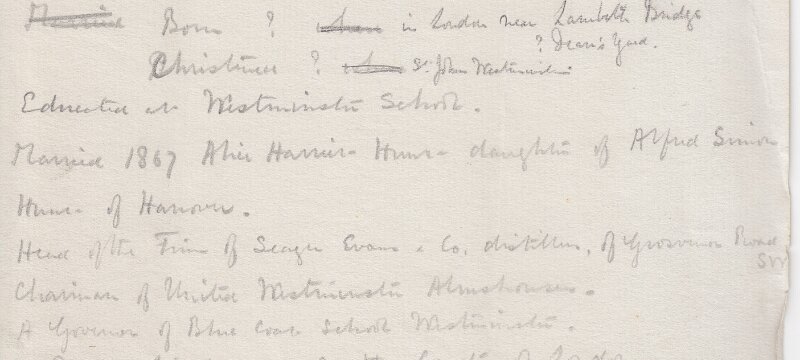 Married Born ? when in London near Lambeth Bridge
? Dean's Yard.
Christened ? when St. Johns Westminster
Educated at Westminster School.
Married 1867 Alice Harriet daughter of Alfred Simon
of Hanover.
Head of the Firm of Seager Evans & Co. distillers, of Grosvenor Road
SW
Chairman of United Westminster Almshouses.
A Governor of Blue Coat School Westminster.
of London